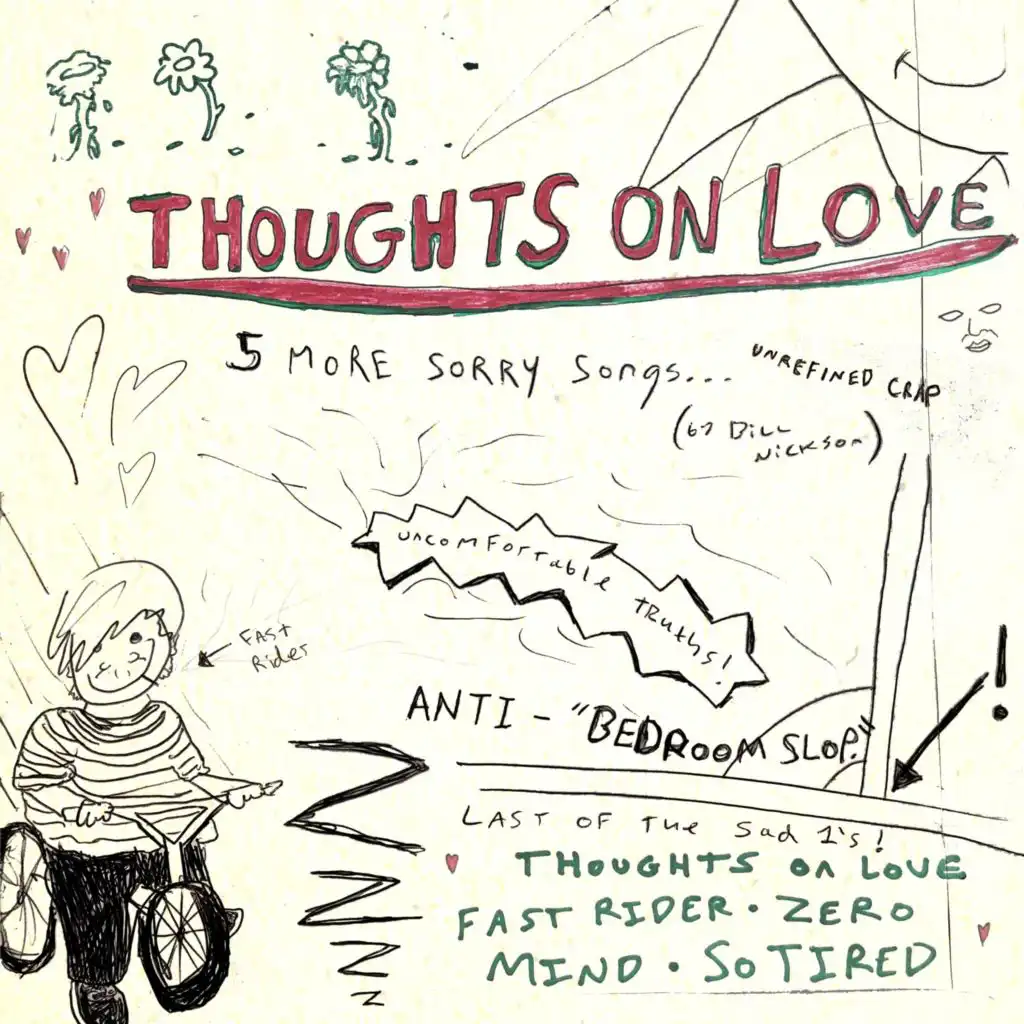 THOUGHTS ON LOVE
5 MORE SORRY SONGS...
UNREFINED CRAP
(by BILL
NICKSON)
UNCOMFORTABLE TRUTHS!
FAST
RIDER
ANTI - "BEDROOM SLOP."
!
LAST OF THE SAD 1's!
THOUGHTS ON LOVE
FAST RIDER · ZERO
MIND · SO TIRED